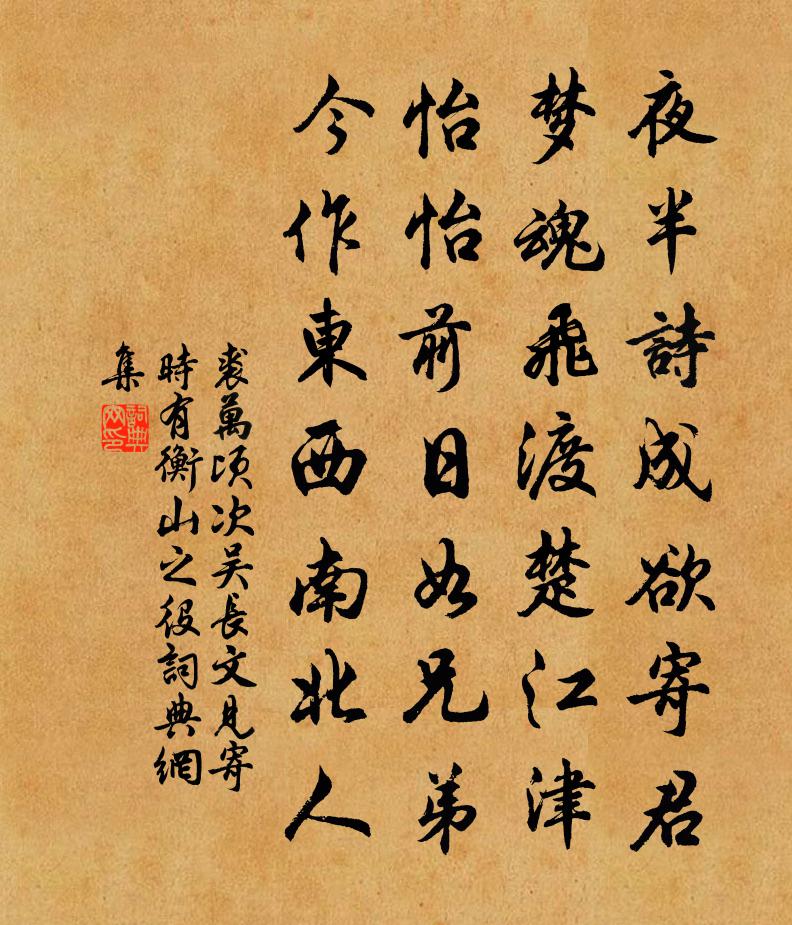 夜半詩成欲寄君
梦魂飛渡楚江津
怡怡前日如兄弟
今作東西南北人
裘萬頃次吴長文見寄
時有衡山之役詞典網
集
詞典网印